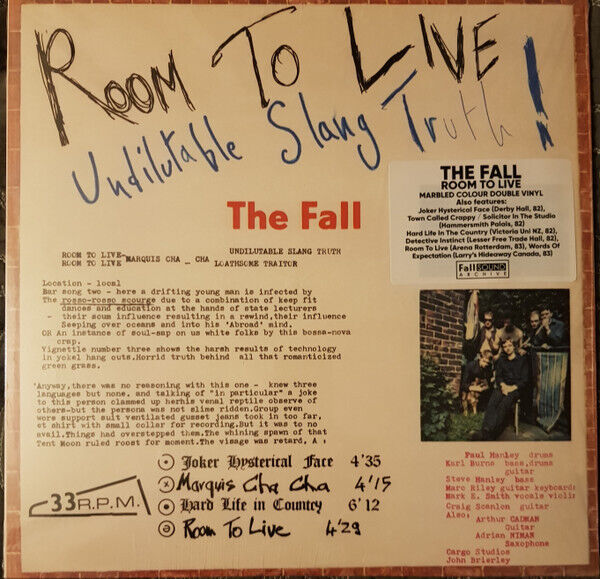 ROOM TO LIVE
Undilutable Slang Truth!
The Fall
THE FALL
ROOM TO LIVE
MARBLED COLOUR DOUBLE VINYL
Also features:
Joker Hysterical Face (Derby Hall, 82),
Town Called Crappy / Solicitor In The Studio
(Hammersmith Palais, 82)
Hard Life In The Country (Victoria Uni NZ, 82),
Detective Instinct (Lesser Free Trade Hall, 82),
Room To Live (Arena Rotterdam, 83), Words Of
Expectation (Larry's Hideaway Canada, 83)
Fall SOUND
ARCHIVE
ROOM TO LIVE- UNDILUTABLE SLANG TRUTH
ROOM TO LIVE MARQUIS CHA _ CHA LOATHSOME TRAITOR
Location - locsl
Bar song two - here a drifting young man is infected by
The rosso-rosso scourge due to a combination of keep fit
dances and education at the hands of state lecturers
- their scum influence resulting in a rewind,their influence
Seeping over oceans and into his 'Abroad' mind.
OR An instance of soul-sap on us white folks by this bossa-nova
crap.
Vignettle number three shows the harsh results of technology
in yokel hang outs.Horrid truth behind all that romanticized
green grass.
'Anyway,there was no reasoning with this one - knew three
languages but none. and talking of "in particular" a joke
to this person clammed up herhis venal reptile observe of
others-but the persona was not slime ridden.Group even
wore support suit ventilated gusset jeans took in too far,
et shirt with small collar for recording.But it was to no
avail.Things had overstepped them.The whining spawn of that
Tent Moon ruled roost for moment.The visage was retard, A :
33 R.P.M.
Joker Hysterical Face 4'35
Marquis Cha Cha 4'15
Hard Life in Country 6'12
Room To Live 4'29
Paul Hanley drums
Karl Burns bass,drums
guitar
Steve Hanley bass
Marc Riley guitar keyboards
Mark E. Smith vocals violin
Craig Scanlon guitar
Also;
Arthur CADMAN
Guitar
Adrian NIMAN
Saxophone
Cargo Studios
John Brierley